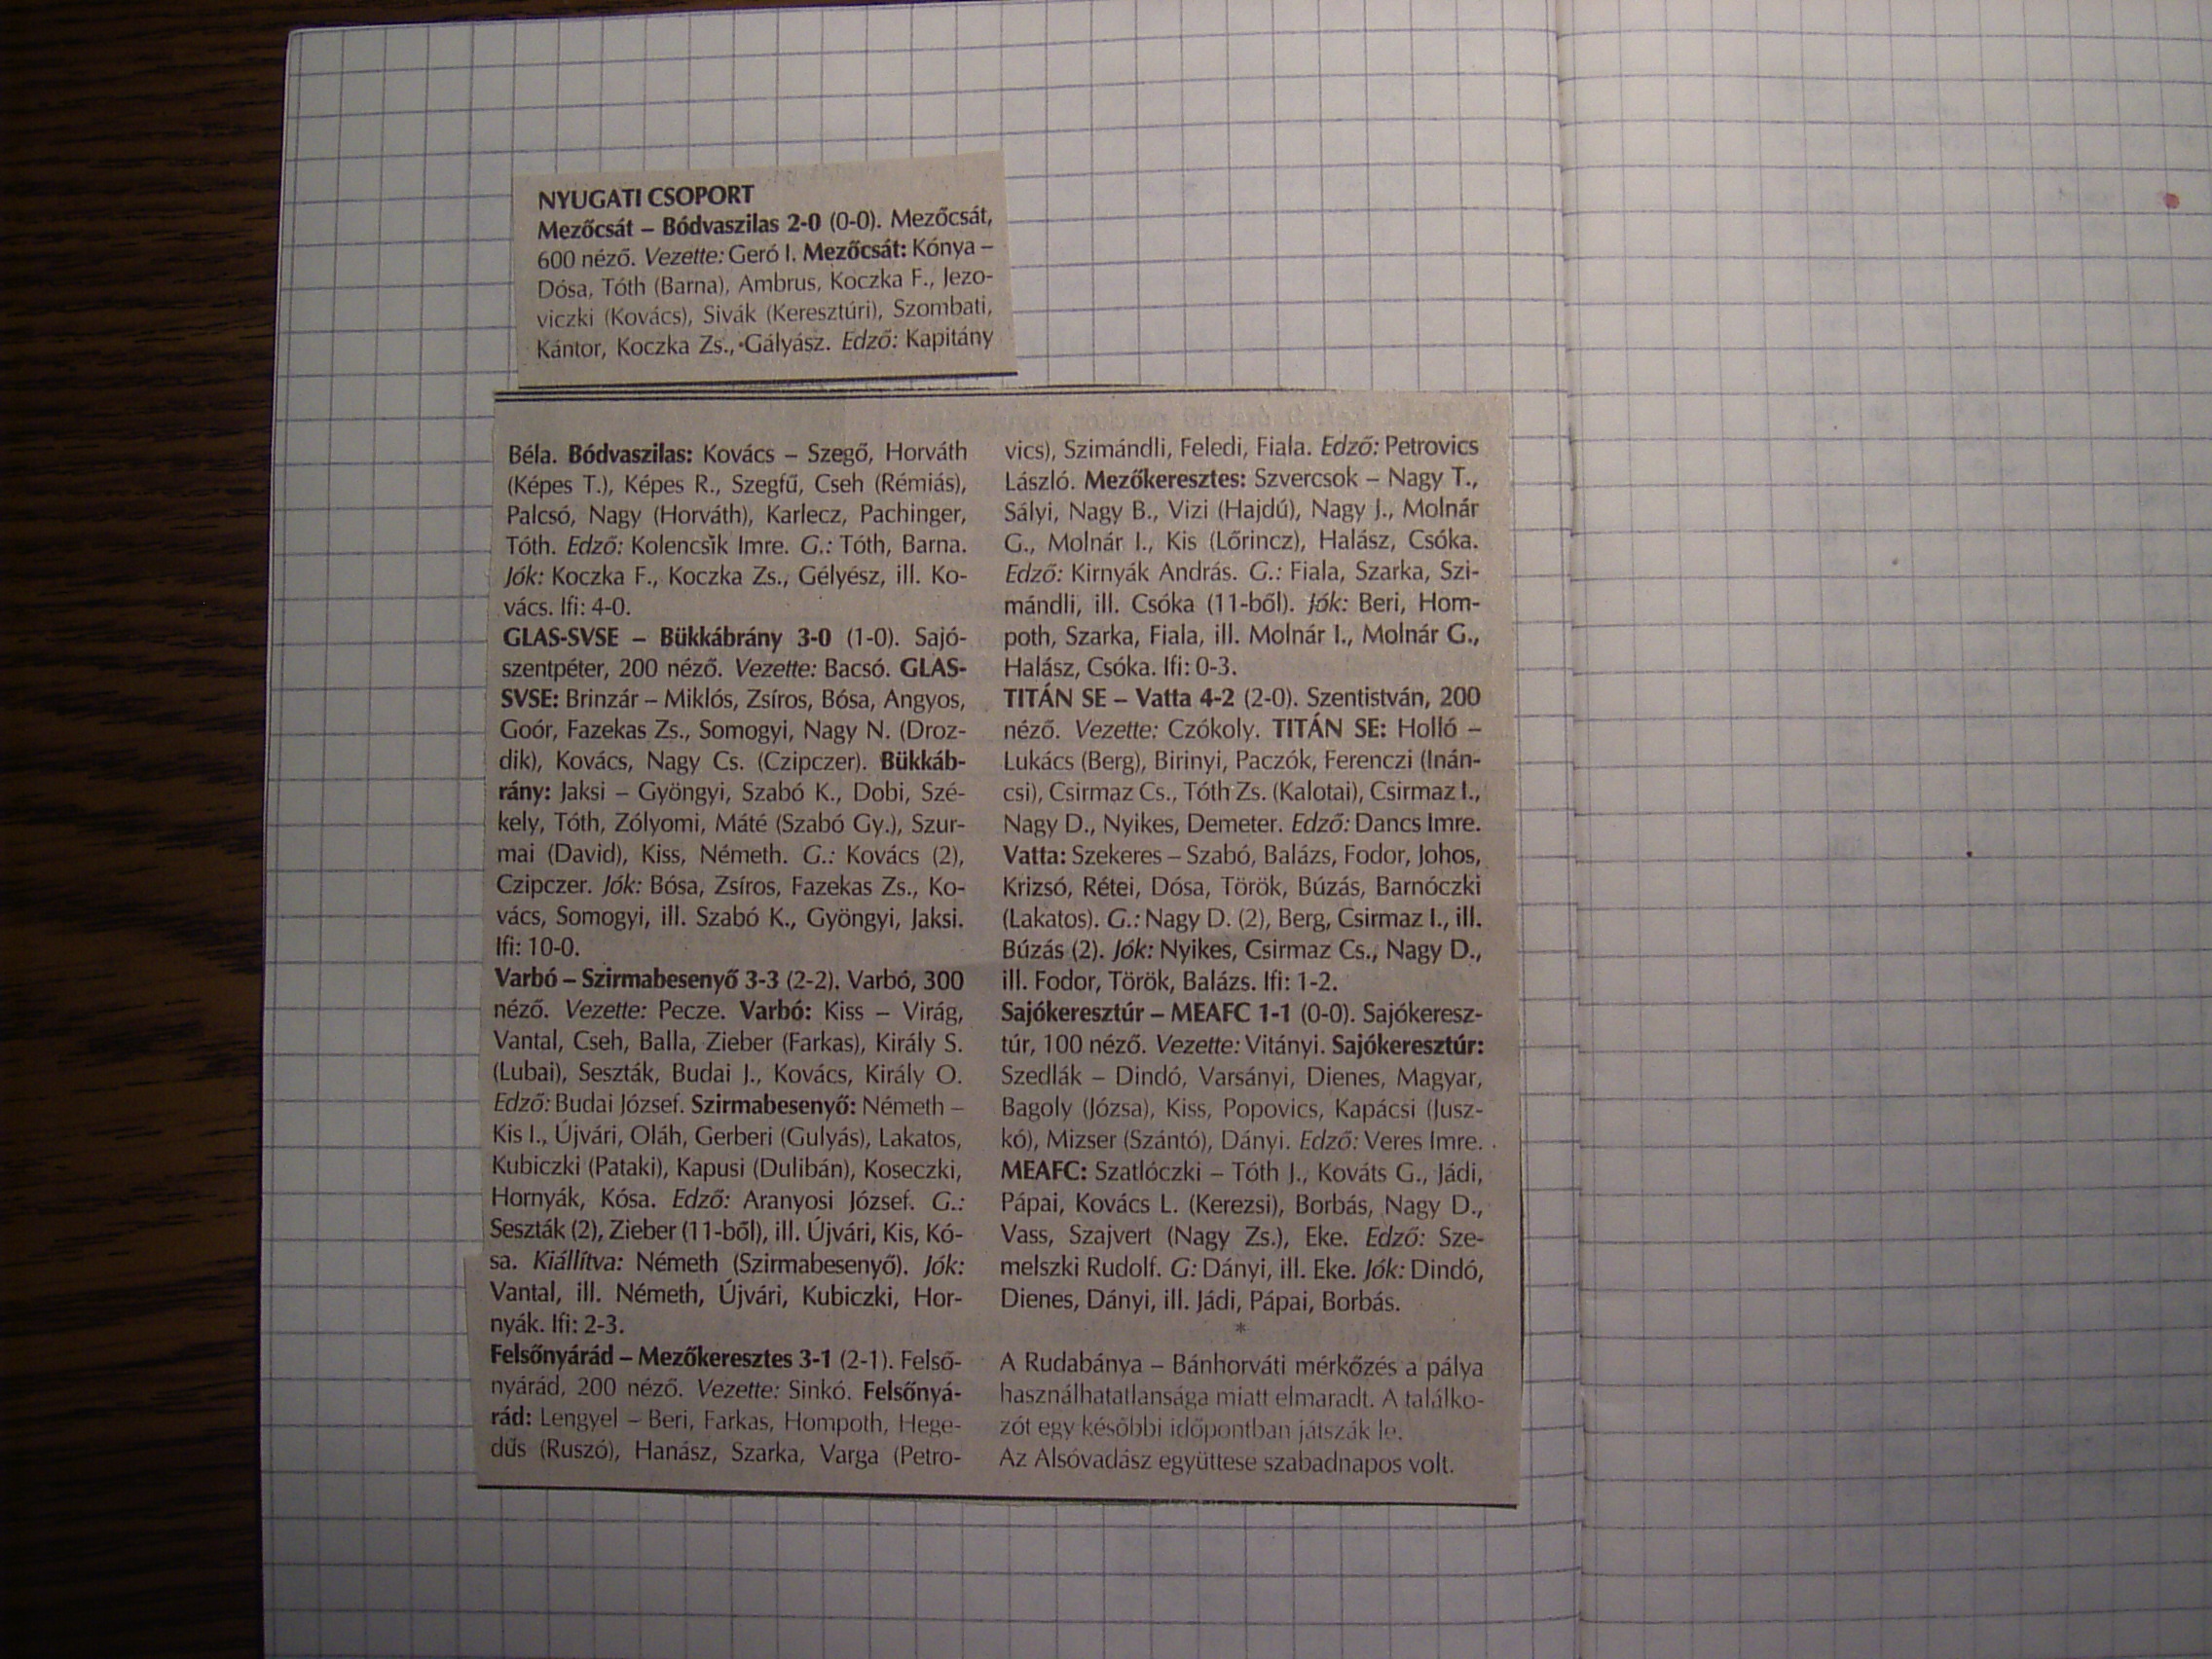 NYUGATI CSOPORT
Mezőcsát – Bódvaszilas 2-0 (0-0). Mezőcsát,
600 néző. Vezette: Geró I. Mezőcsát: Kónya –
Dósa, Tóth (Barna), Ambrus, Koczka F., Jezo-
viczki (Kovács), Sivák (Keresztúri), Szombati,
Kántor, Koczka Zs., Gályász. Edző: Kapitány
Béla. Bódvaszilas: Kovács – Szegő, Horváth
(Képes T.), Képes R., Szegfű, Cseh (Rémiás),
Palcsó, Nagy (Horváth), Karlecz, Pachinger,
Tóth. Edző: Kolencsik Imre. G.: Tóth, Barna.
Jók: Koczka F., Koczka Zs., Gélyész, ill. Ko-
vács. Ifi: 4-0.
GLAS-SVSE – Bükkábrány 3-0 (1-0). Sajó-
szentpéter, 200 néző. Vezette: Bacsó. GLAS-
SVSE: Brinzár – Miklós, Zsíros, Bósa, Angyos,
Goór, Fazekas Zs., Somogyi, Nagy N. (Droz-
dik), Kovács, Nagy Cs. (Czipczer). Bükkáb-
rány: Jaksi – Gyöngyi, Szabó K., Dobi, Szé-
kely, Tóth, Zólyomi, Máté (Szabó Gy.), Szur-
mai (David), Kiss, Németh. G.: Kovács (2),
Czipczer. Jók: Bósa, Zsíros, Fazekas Zs., Ko-
vács, Somogyi, ill. Szabó K., Gyöngyi, Jaksi.
Ifi: 10-0.
Varbó – Szirmabesenyő 3-3 (2-2). Varbó, 300
néző. Vezette: Pecze. Varbó: Kiss – Virág,
Vantal, Cseh, Balla, Zieber (Farkas), Király S.
(Lubai), Seszták, Budai J., Kovács, Király O.
Edző: Budai József. Szirmabesenyő: Németh –
Kis I., Újvári, Oláh, Gerberi (Gulyás), Lakatos,
Kubiczki (Pataki), Kapusi (Dulibán), Koseczki,
Hornyák, Kósa. Edző: Aranyosi József. G.:
Seszták (2), Zieber (11-ből), ill. Újvári, Kis, Kó-
sa. Kiállítva: Németh (Szirmabesenyő). Jók:
Vantal, ill. Németh, Újvári, Kubiczki, Hor-
nyák. Ifi: 2-3.
Felsőnyárád – Mezőkeresztes 3-1 (2-1). Felső-
nyárád, 200 néző. Vezette: Sinkó. Felsőnyá-
rád: Lengyel – Beri, Farkas, Hompoth, Hege-
dűs (Ruszó), Hanász, Szarka, Varga (Petro-
vics), Szimándli, Feledi, Fiala. Edző: Petrovics
László. Mezőkeresztes: Szvercsok – Nagy T.,
Sályi, Nagy B., Vizi (Hajdú), Nagy J., Molnár
G., Molnár I., Kis (Lőrincz), Halász, Csóka.
Edző: Kirnyák András. G.: Fiala, Szarka, Szi-
mándli, ill. Csóka (11-ből). Jók: Beri, Hom-
poth, Szarka, Fiala, ill. Molnár I., Molnár G.,
Halász, Csóka. Ifi: 0-3.
TITÁN SE – Vatta 4-2 (2-0). Szentistván, 200
néző. Vezette: Czókoly. TITÁN SE: Holló –
Lukács (Berg), Birinyi, Paczók, Ferenczi (Inán-
csi), Csirmaz Cs., Tóth Zs. (Kalotai), Csirmaz I.,
Nagy D., Nyikes, Demeter. Edző: Dancs Imre.
Vatta: Szekeres – Szabó, Balázs, Fodor, Johos,
Krizsó, Rétei, Dósa, Török, Búzás, Barnóczki
(Lakatos). G.: Nagy D. (2), Berg, Csirmaz I., ill.
Búzás (2). Jók: Nyikes, Csirmaz Cs., Nagy D.,
ill. Fodor, Török, Balázs. Ifi: 1-2.
Sajókeresztúr – MEAFC 1-1 (0-0). Sajókeresz-
túr, 100 néző. Vezette: Vitányi. Sajókeresztúr:
Szedlák – Dindó, Varsányi, Dienes, Magyar,
Bagoly (Józsa), Kiss, Popovics, Kapácsi (Jusz-
kó), Mizser (Szántó), Dányi. Edző: Veres Imre.
MEAFC: Szatlóczki – Tóth J., Kováts G., Jádi,
Pápai, Kovács L. (Kerezsi), Borbás, Nagy D.,
Vass, Szajvert (Nagy Zs.), Eke. Edző: Sze-
melszki Rudolf. G: Dányi, ill. Eke. Jók: Dindó,
Dienes, Dányi, ill. Jádi, Pápai, Borbás.
*
A Rudabánya – Bánhorváti mérkőzés a pálya
használhatatlansága miatt elmaradt. A találko-
zót egy későbbi időpontban játszák le.
Az Alsóvadász együttese szabadnapos volt.